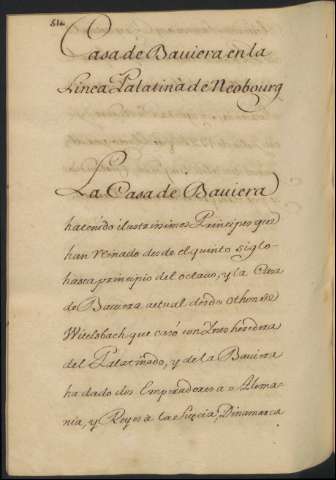 512
Casa de Baviera en la
Linea Palatina de Neobourg
La Casa de Baviera
ha tenido ilustrisimos Principes que
han reinado desde el quinto siglo
hasta principio del octavo, y la Casa
de Baviera actual desde Othon de
Witelsbach que casó con heredera
del Palatinado, y de la Baviera
ha dado dos Emperadores a Alema-
nia, y Reyes a la Suecia, Dinamarca